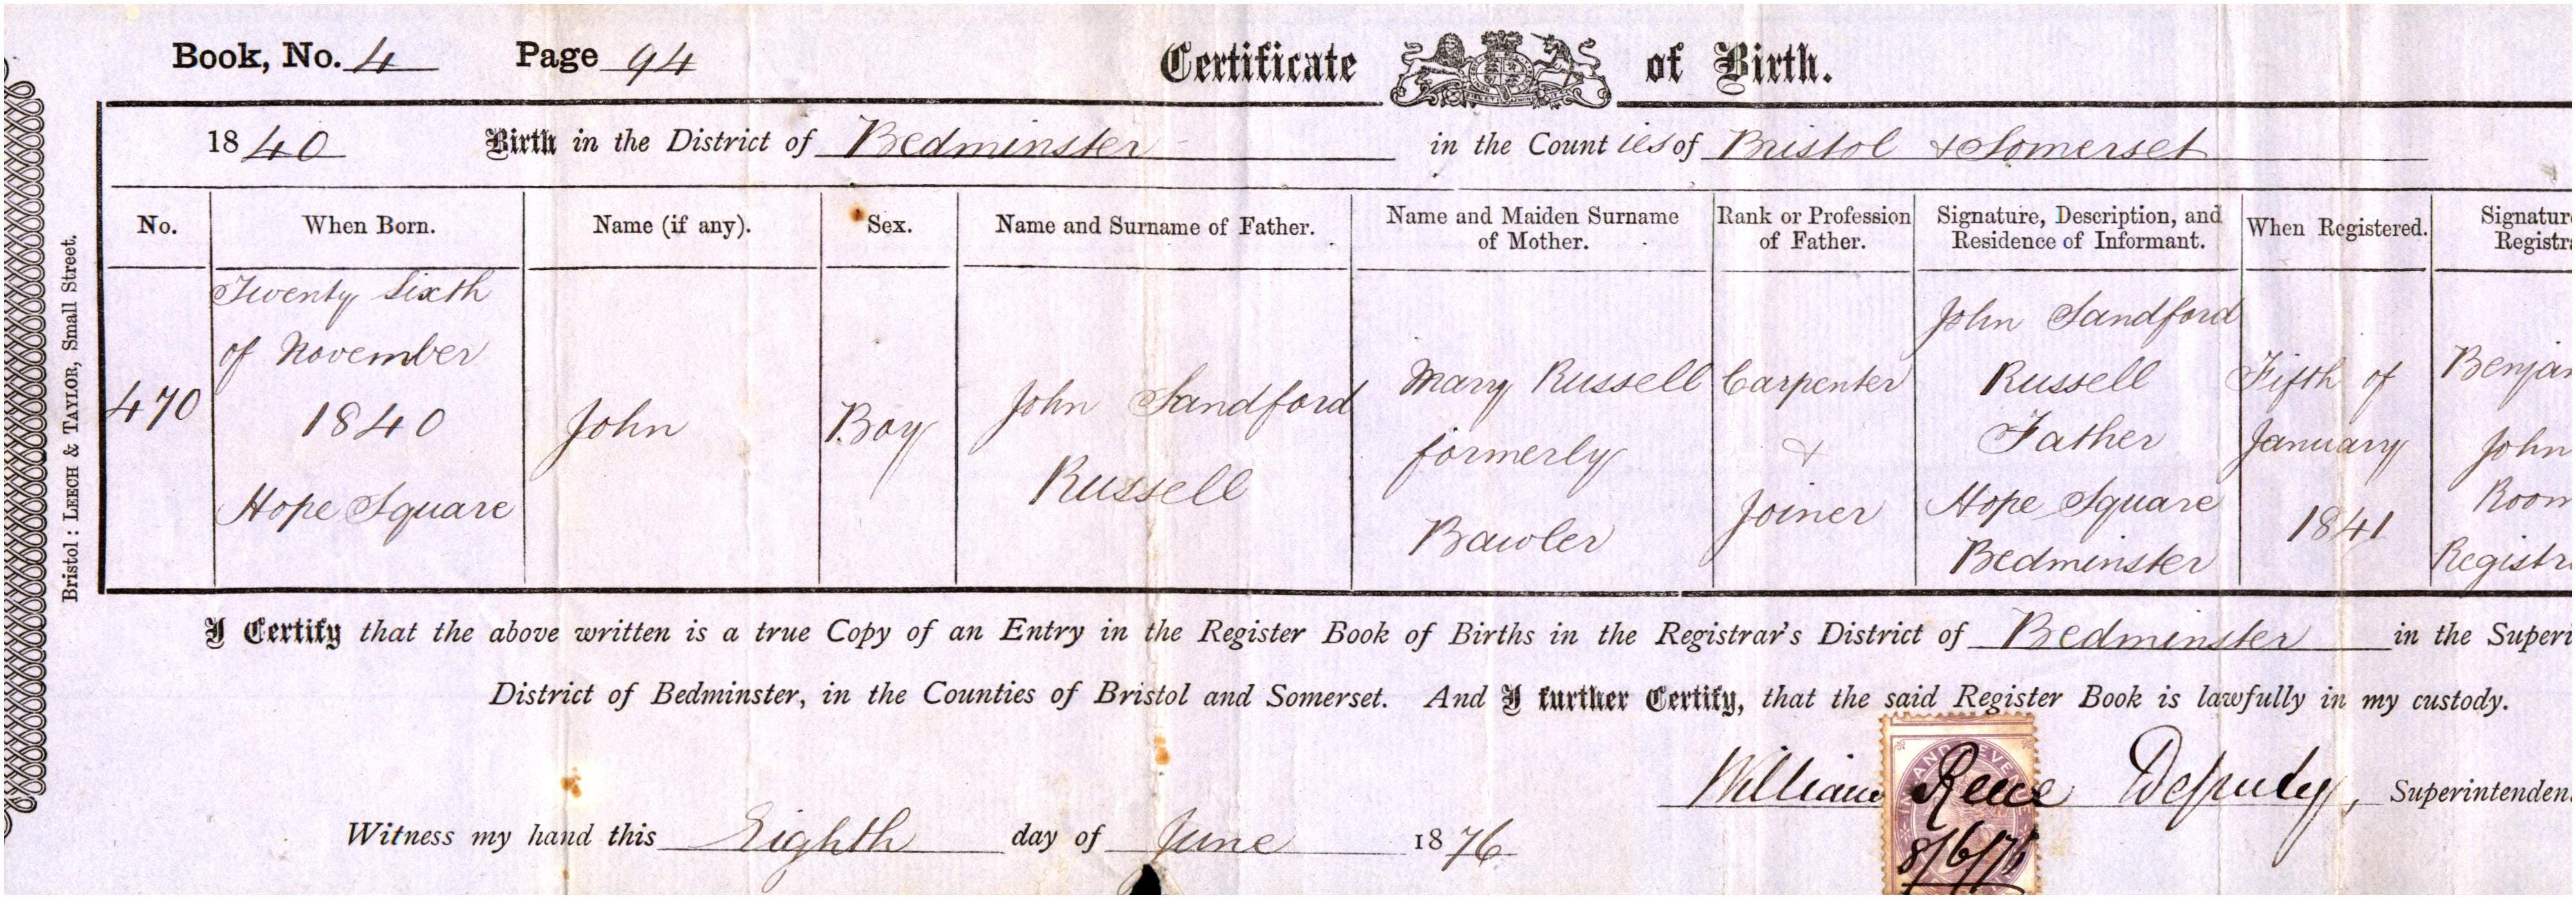 Book, No. 4 Page 94 Certificate of Birth.
1840 Birth in the District of Bedminster in the Counties of Bristol & Somerset
No. When Born. Name (if any). Sex. Name and Surname of Father. Name and Maiden Surname of Mother. Rank or Profession of Father. Signature, Description, and Residence of Informant. When Registered. Signatur Registr
470
Twenty Sixth
of November
1840
Hope Square
John
Boy
John Sandford
Russell
Mary Russell
formerly
Bawler
Carpenter
&
Joiner
John Sandford
Russell
Father
Hope Square
Bedminster
Fifth of
January
1841
Benjam
John
Room
Registr
I Certify that the above written is a true Copy of an Entry in the Register Book of Births in the Registrar's District of Bedminster in the Superi
District of Bedminster, in the Counties of Bristol and Somerset. And I further Certify, that the said Register Book is lawfully in my custody.
William Reece Deputy, Superintenden
Witness my hand this Eighth day of June 1876
8/6/76
Bristol: LEECH & TAYLOR, Small Street.